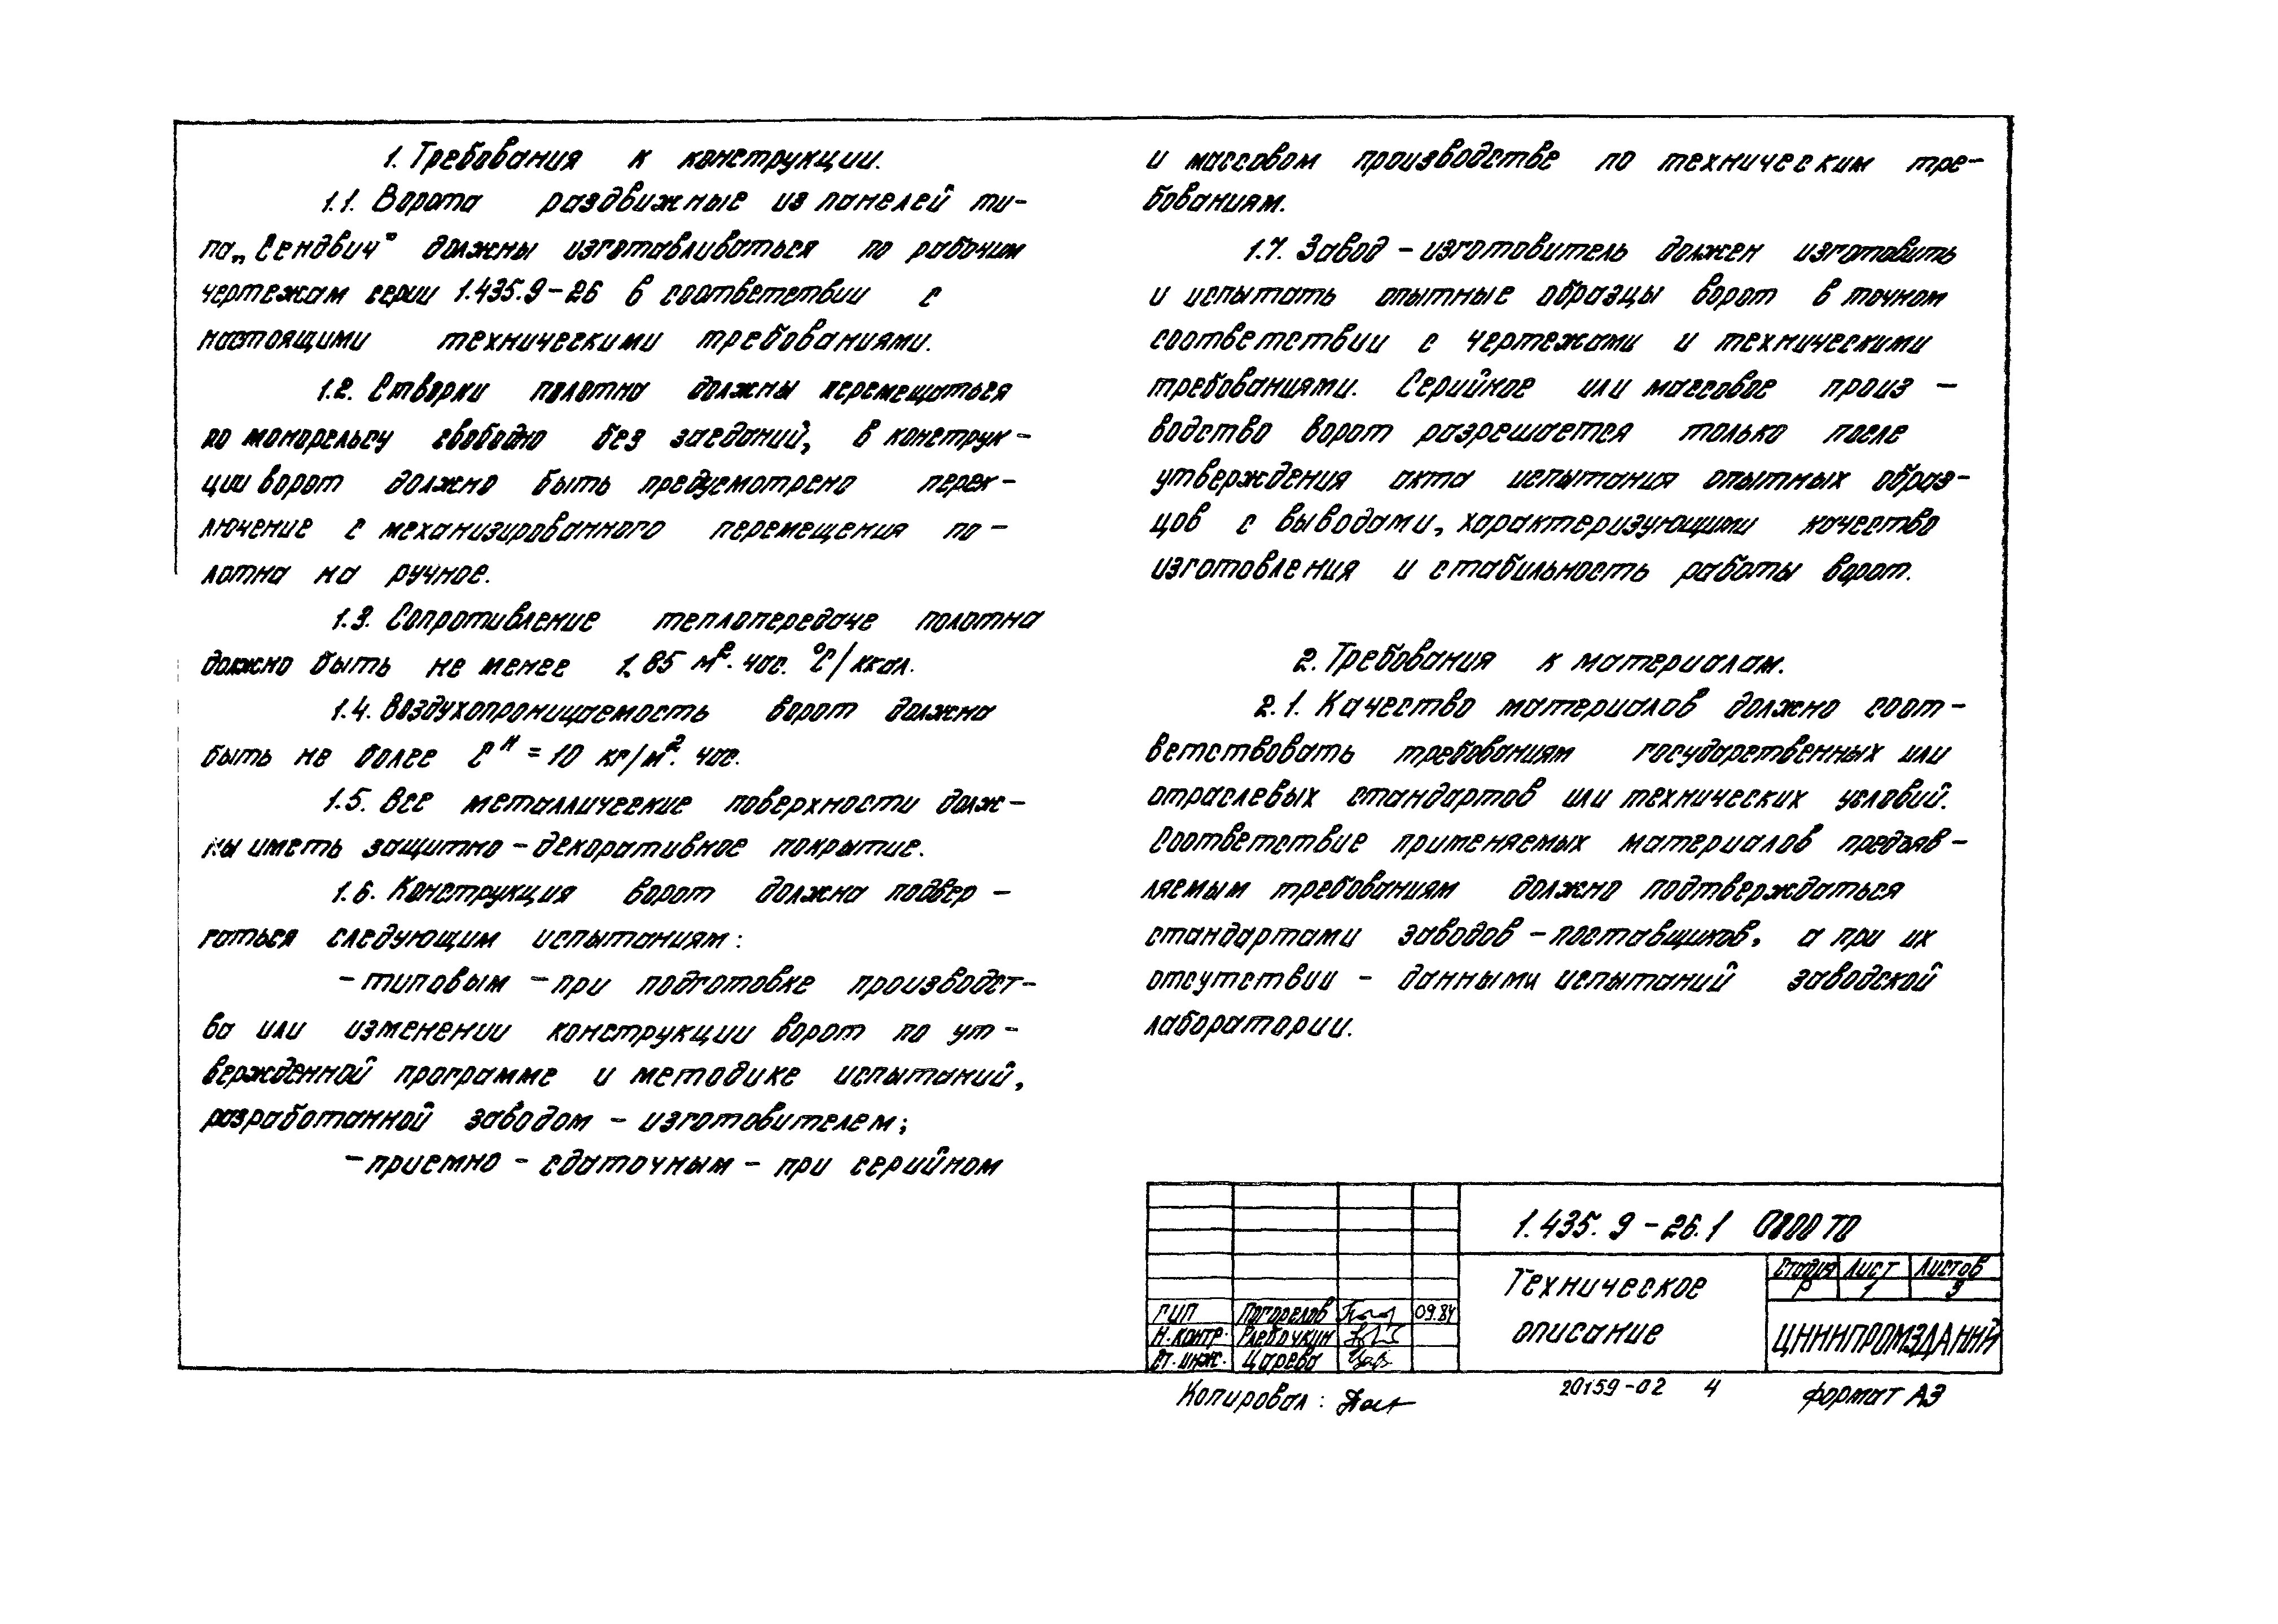 1. Требования к конструкции.
1.1. Ворота раздвижные из панелей ти-
па „Сендвич" должны изготавливаться по рабочим
чертежам серии 1.435.9-26 в соответствии с
настоящими техническими требованиями.
1.2. Створки полотна должны перемещаться
по монорельсу свободно без заеданий, в конструк-
ции ворот должно быть предусмотрено перек-
лючение с механизированного перемещения по-
лотна на ручное.
1.3. Сопротивление теплопередаче полотна
должно быть не менее 1,85 м². час. °С/ккал.
1.4. Воздухопроницаемость ворот должна
быть не более ℓᴴ = 10 кг/м². час.
1.5. Все металлические поверхности долж-
ны иметь защитно-декоративное покрытие.
1.6. Конструкция ворот должна подвер-
гаться следующим испытаниям:
- типовым - при подготовке производст-
ва или изменении конструкции ворот по ут-
вержденной программе и методике испытаний,
разработанной заводом - изготовителем;
- приемно - сдаточным - при серийном
и массовом производстве по техническим тре-
бованиям.
1.7. Завод - изготовитель должен изготовить
и испытать опытные образцы ворот в точном
соответствии с чертежами и техническими
требованиями. Серийное или массовое произ-
водство ворот разрешается только после
утверждения акта испытания опытных образ-
цов с выводами, характеризующими качество
изготовления и стабильность работы ворот.
2. Требования к материалам.
2.1. Качество материалов должно соот-
ветствовать требованиям государственных или
отраслевых стандартов или технических условий.
Соответствие применяемых материалов предъяв-
ляемым требованиям должно подтверждаться
стандартами заводов-поставщиков, а при их
отсутствии - данными испытаний заводской
лаборатории.
1.435.9-26.1 0800 ТО
Техническое
описание
Стадия Лист Листов
Р 1 3
ЦНИИПРОМЗДАНИЙ
ГИП Погорелов 09.84
Н.контр.
Ст. инж. Царева
Копировал:
20159-02 4
формат А3